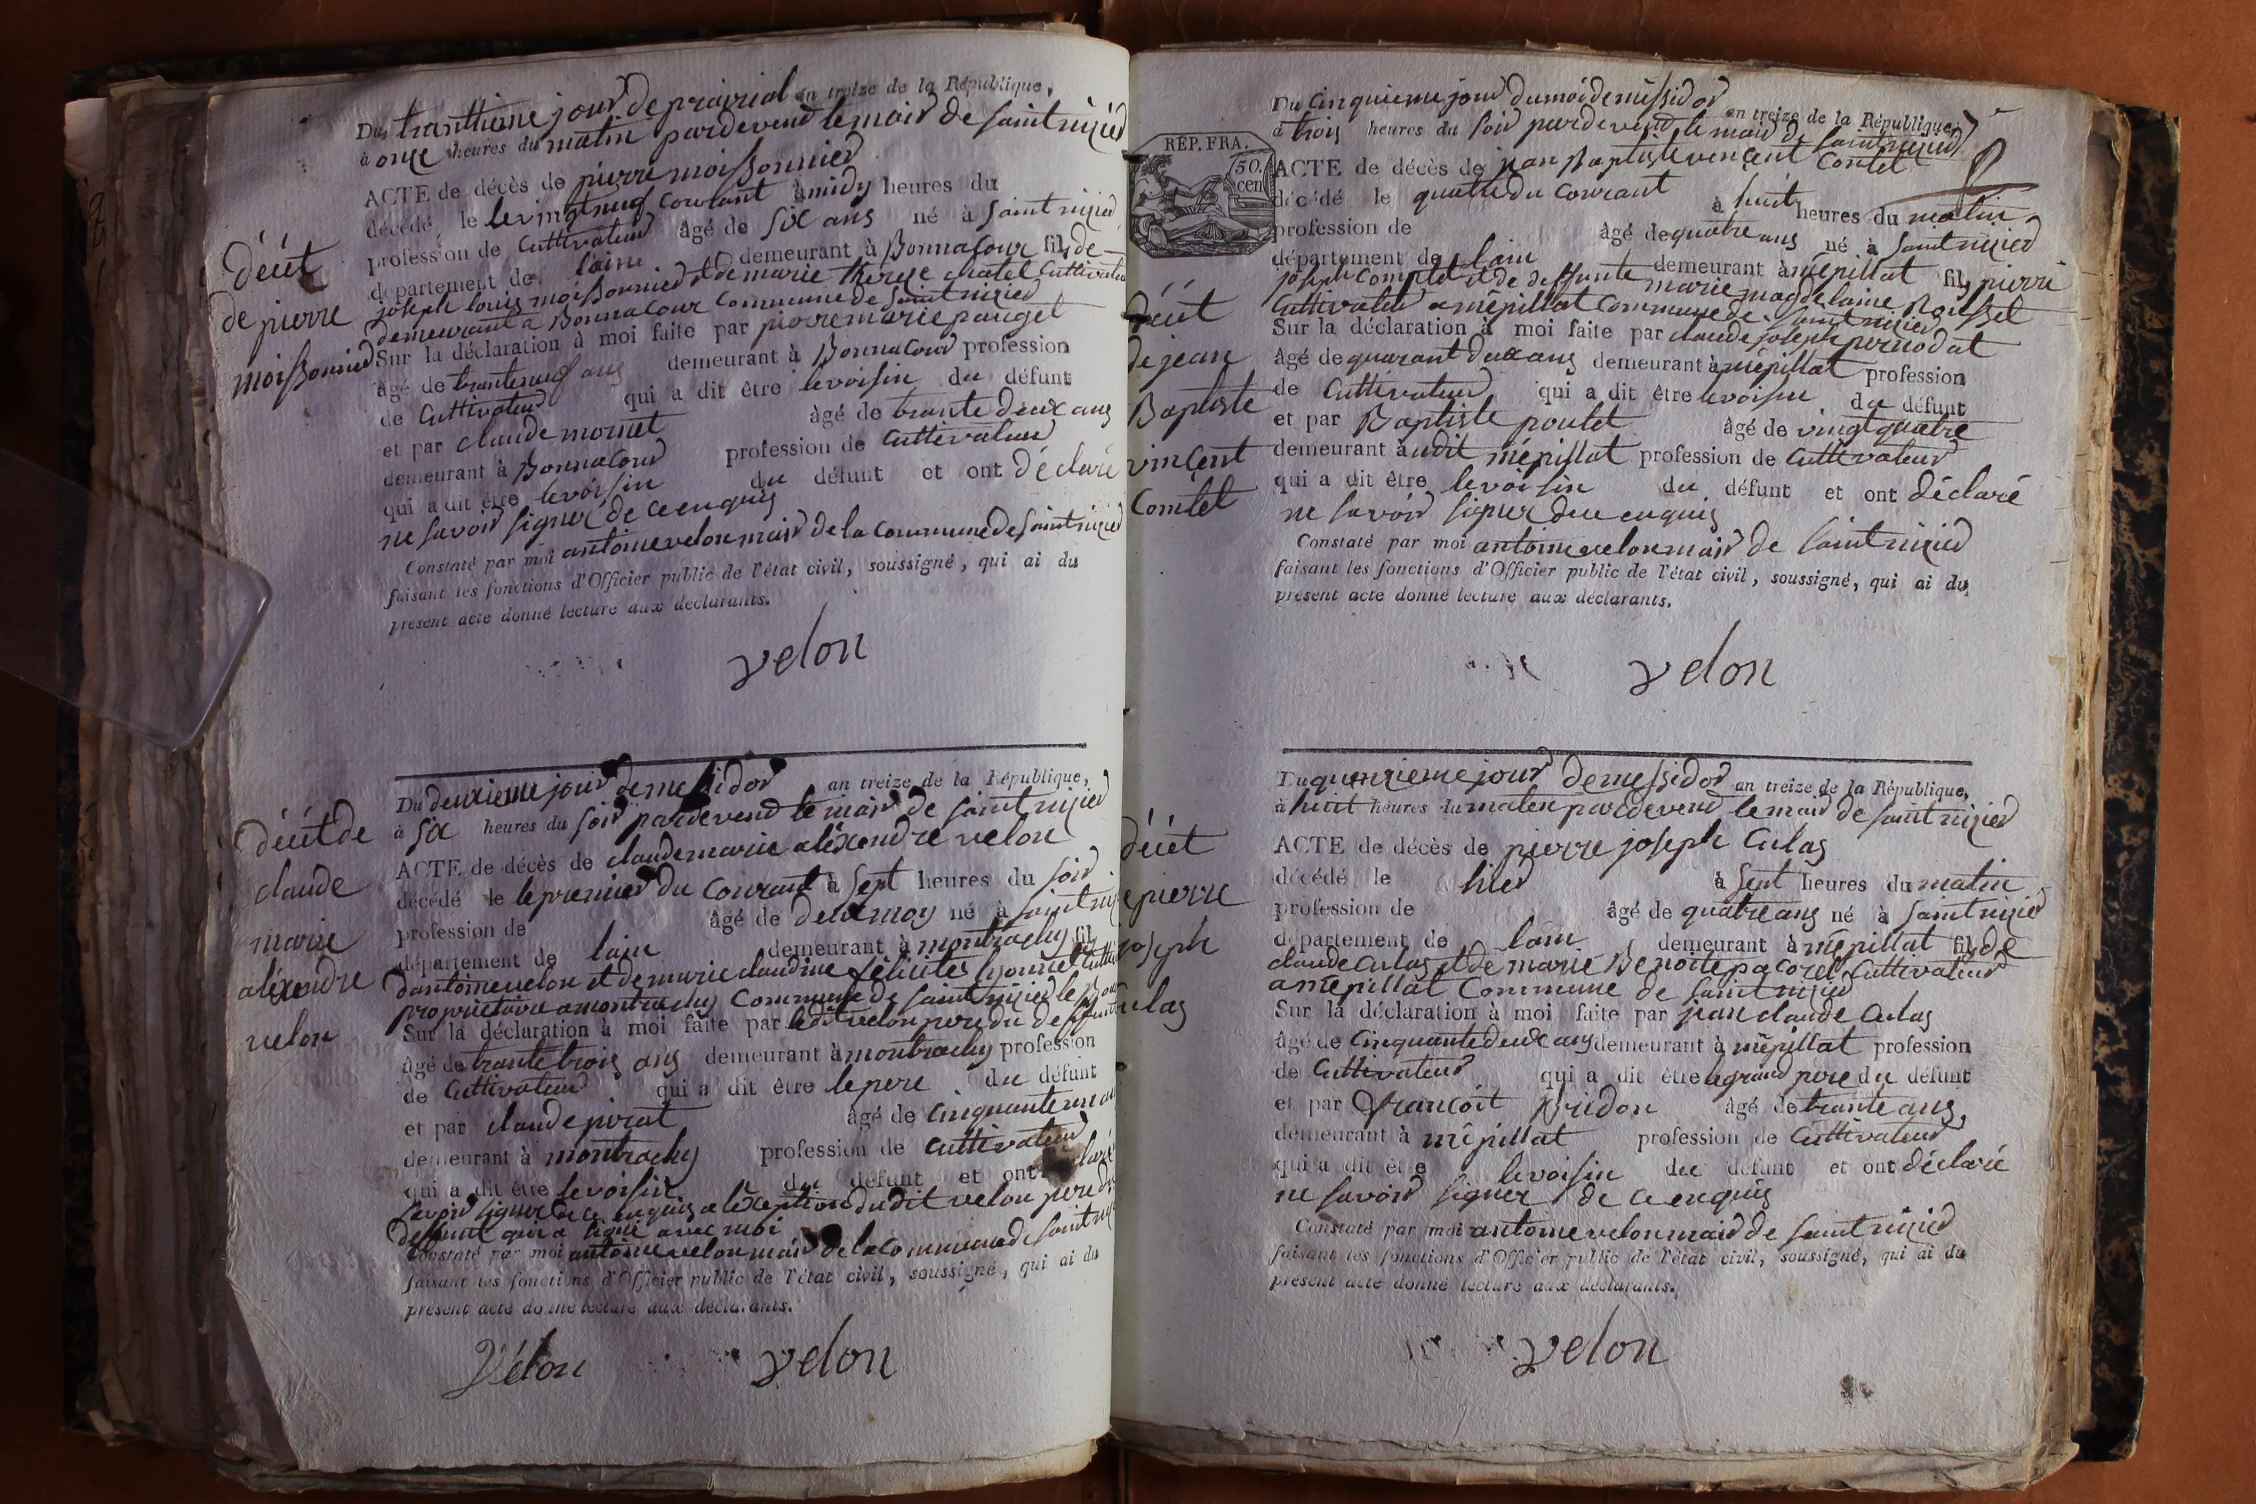 Du tranthieme jour de prairial an treize de la République,
à onze heures du matin pardevend le maid de saint nizied
ACTE de décès de pierre moissonnied
décédé le le vingt neuf courant à midy heures du
profession de Cuttivateur âgé de six ans né à saint nizied
département de l'ain demeurant à Bonnacour fils de
joseph louis moissonnied et de marie therese chatel Cuttivateur
demeurant a Bonnacour Commune de saint nizied
Sur la déclaration à moi faite par pierre marie pauget
âgé de trante neuf ans demeurant à Bonnacourd profession
de Cuttivateur qui a dit être le voisin du défunt
et par claude mornet âgé de trante deux ans
demeurant à Bonnacourd profession de Cuttivateur
qui a dit être le voisin du défunt et ont déclaré
ne savoir signer de ce enquis
Constaté par moi antoine velon maid de la Commune de saint nizied
faisant les fonctions d'Officier public de l'état civil, soussigné, qui ai du
présent acte donné lecture aux déclarants.
velon
décét
de pierre
moissonnied
Du deuxieme jour de messidor an treize de la République,
à six heures du soir pardevend le maid de saint nizied
ACTE de décès de claude marie aléxendre velon
décédé le le premier du Courant à sept heures du soir
profession de âgé de deux moy né à saint niz
département de l'ain demeurant à montrachy fil
dantoine velon et de marie claudine félicités lyonnet Cuttiv
propriétaire a montrachy Commune de saint nizied le Bou
Sur la déclaration à moi faite par ledit velon pere du deffunt
âgé de trante trois ans demeurant à montrachy profession
de Cuttivateur qui a dit être le pere du défunt
et par claude pirat âgé de cinquante un an
demeurant à montrachy profession de Cuttivateur
qui a dit être le voisin du défunt et ont
savoir signer de ce enquis a léxeption du dit velon pere du
deffunt qui a signé avec moi
Constaté par moi antoine velon maid de la Commune de saint niz
faisant les fonctions d'Officier public de l'état civil, soussigné, qui ai du
présent acte donné lecture aux déclarants.
Vélon velon
décét de
claude
marie
aléxendre
velon
Du cinquieme jour du moi de messidor an treize de la République,
à trois heures du soir pardevend le maid de saint nizied
REP. FRA.
50.
cen
ACTE de décès de jean Baptiste vincent Comtet
décédé le quatre du courant à huit heures du matin
profession de âgé de quatre ans né à saint nizied
département de l'ain demeurant à mépillat fils pierre
joseph Comptet et de deffunte marie magdelaine Roussel
Cuttivateur a mépillat Commune de saint nizied
Sur la déclaration à moi faite par claude joseph pernodat
âgé de quarant deux ans demeurant à mépillat profession
de Cuttivateur qui a dit être le voisin du défunt
et par Baptiste poulet âgé de vingt quatre
demeurant à udit mépillat profession de Cuttivateur
qui a dit être le voisin du défunt et ont déclaré
ne savoir signer de ce enquis
Constaté par moi antoine velon maid de saint nizied
faisant les fonctions d'Officier public de l'état civil, soussigné, qui ai du
présent acte donné lecture aux déclarants.
velon
décét
de jean
Baptiste
vincent
Comtet
Du quenzieme jour de messidor an treize de la République,
à huit heures du maten pardevend le maid de saint nizied
ACTE de décès de pierre joseph Culas
décédé le hier à sept heures du matin
profession de âgé de quatre ans né à saint nizied
département de l'ain demeurant à mépillat fils de
claude Culas et de marie Benoite pacorel Cuttivateur
a mépillat Commune de saint nizied
Sur la déclaration à moi faite par jean claude Culas
âgé de cinquante deux ans demeurant à mépillat profession
de Cuttivateur qui a dit être le grand pere du défunt
et par françoit pridon âgé de trante ans
demeurant à mépillat profession de Cuttivateur
qui a dit être le voisin du défunt et ont déclaré
ne savoir signer de ce enquis
Constaté par moi antoine velon maid de saint nizied
faisant les fonctions d'Officier public de l'état civil, soussigné, qui ai du
présent acte donné lecture aux déclarants.
velon
décét
e pierre
joseph
culas